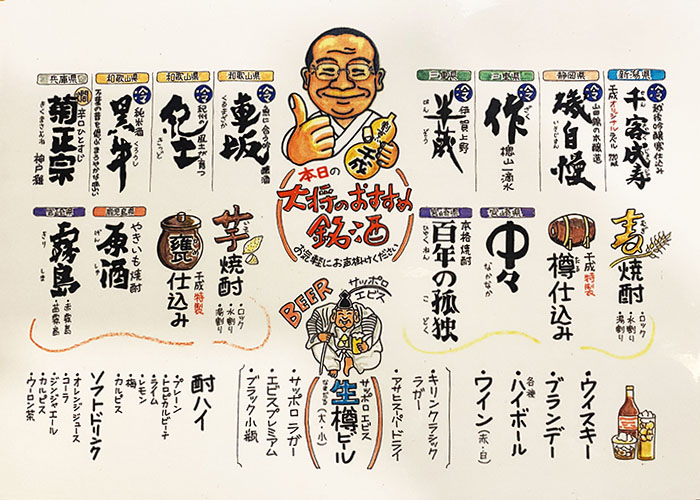 新潟県
冷
越後吟醸寒仕込み
千客成寿
千成オリジナルラベル 720ml
静岡県
冷
山田錦の本醸造
磯自慢
いそじまん
三重県
冷
作
ざく
穂山一滴水
三重県
冷
伊賀上野
半蔵
はんぞう
本日の
大将のおすすめ
銘酒
お気軽にお声掛けください
千成
和歌山県
冷
車坂
くるまざか
和歌山県
冷
紀州の風土が育つ
紀土
きっど
和歌山県
冷
純米酒
黒牛
くろうし
兵庫県
燗
辛口ひとすじ
菊正宗
きくまさむね
神戸灘
麦焼酎
むぎ
・ロック
・水割り
・湯割り
千成特製
樽仕込み
たる
宮崎県
中々
なかなか
宮崎県
本格焼酎
百年の孤独
ひゃくねん
こどく
芋焼酎
いも
・ロック
・水割り
・湯割り
甕
千成特製
仕込み
鹿児島県
やきいも焼酎
原酒
げんしゅ
宮崎県
霧島
きりしま
・赤霧島
・黒霧島
BEER
サッポロ
エビス
・ウイスキー
・ブランデー
・各種ハイボール
・ワイン(赤・白)
・キリンクラシックラガー
・アサヒスーパードライ
サッポロエビス
生樽ビール
なまだる
(大・小)
・サッポロラガー
・エビスプレミアムブラック小瓶
酎ハイ
・プレーン
・トロピカルピーチ
・ライム
・レモン
・梅
・カルピス
ソフトドリンク
・オレンジジュース
・コーラ
・ジンジャエール
・カルピス
・ウーロン茶